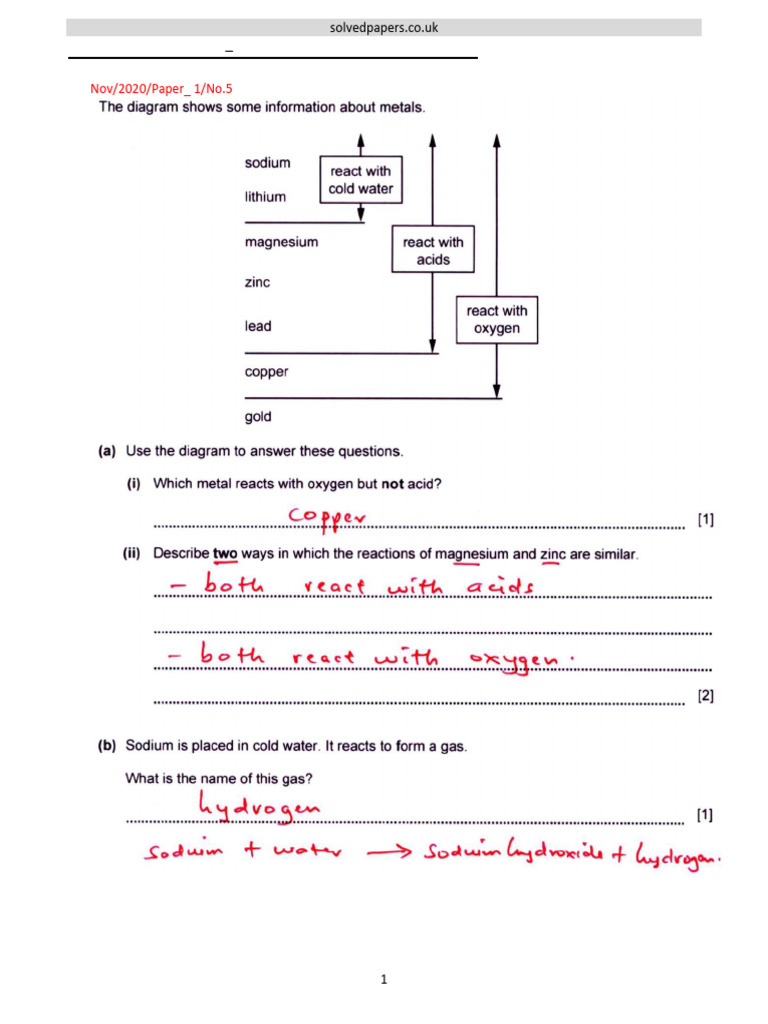 solvedpapers.co.uk
_
Nov/2020/Paper_ 1/No.5
The diagram shows some information about metals.
sodium
react with
cold water
lithium
magnesium
react with
acids
zinc
react with
oxygen
lead
copper
gold
(a) Use the diagram to answer these questions.
(i) Which metal reacts with oxygen but not acid?
copper
[1]
(ii) Describe two ways in which the reactions of magnesium and zinc are similar.
- both react with acids
- both react with oxygen.
[2]
(b) Sodium is placed in cold water. It reacts to form a gas.
What is the name of this gas?
hydrogen
[1]
Sodium + water → Sodium hydroxide + hydrogen.
1